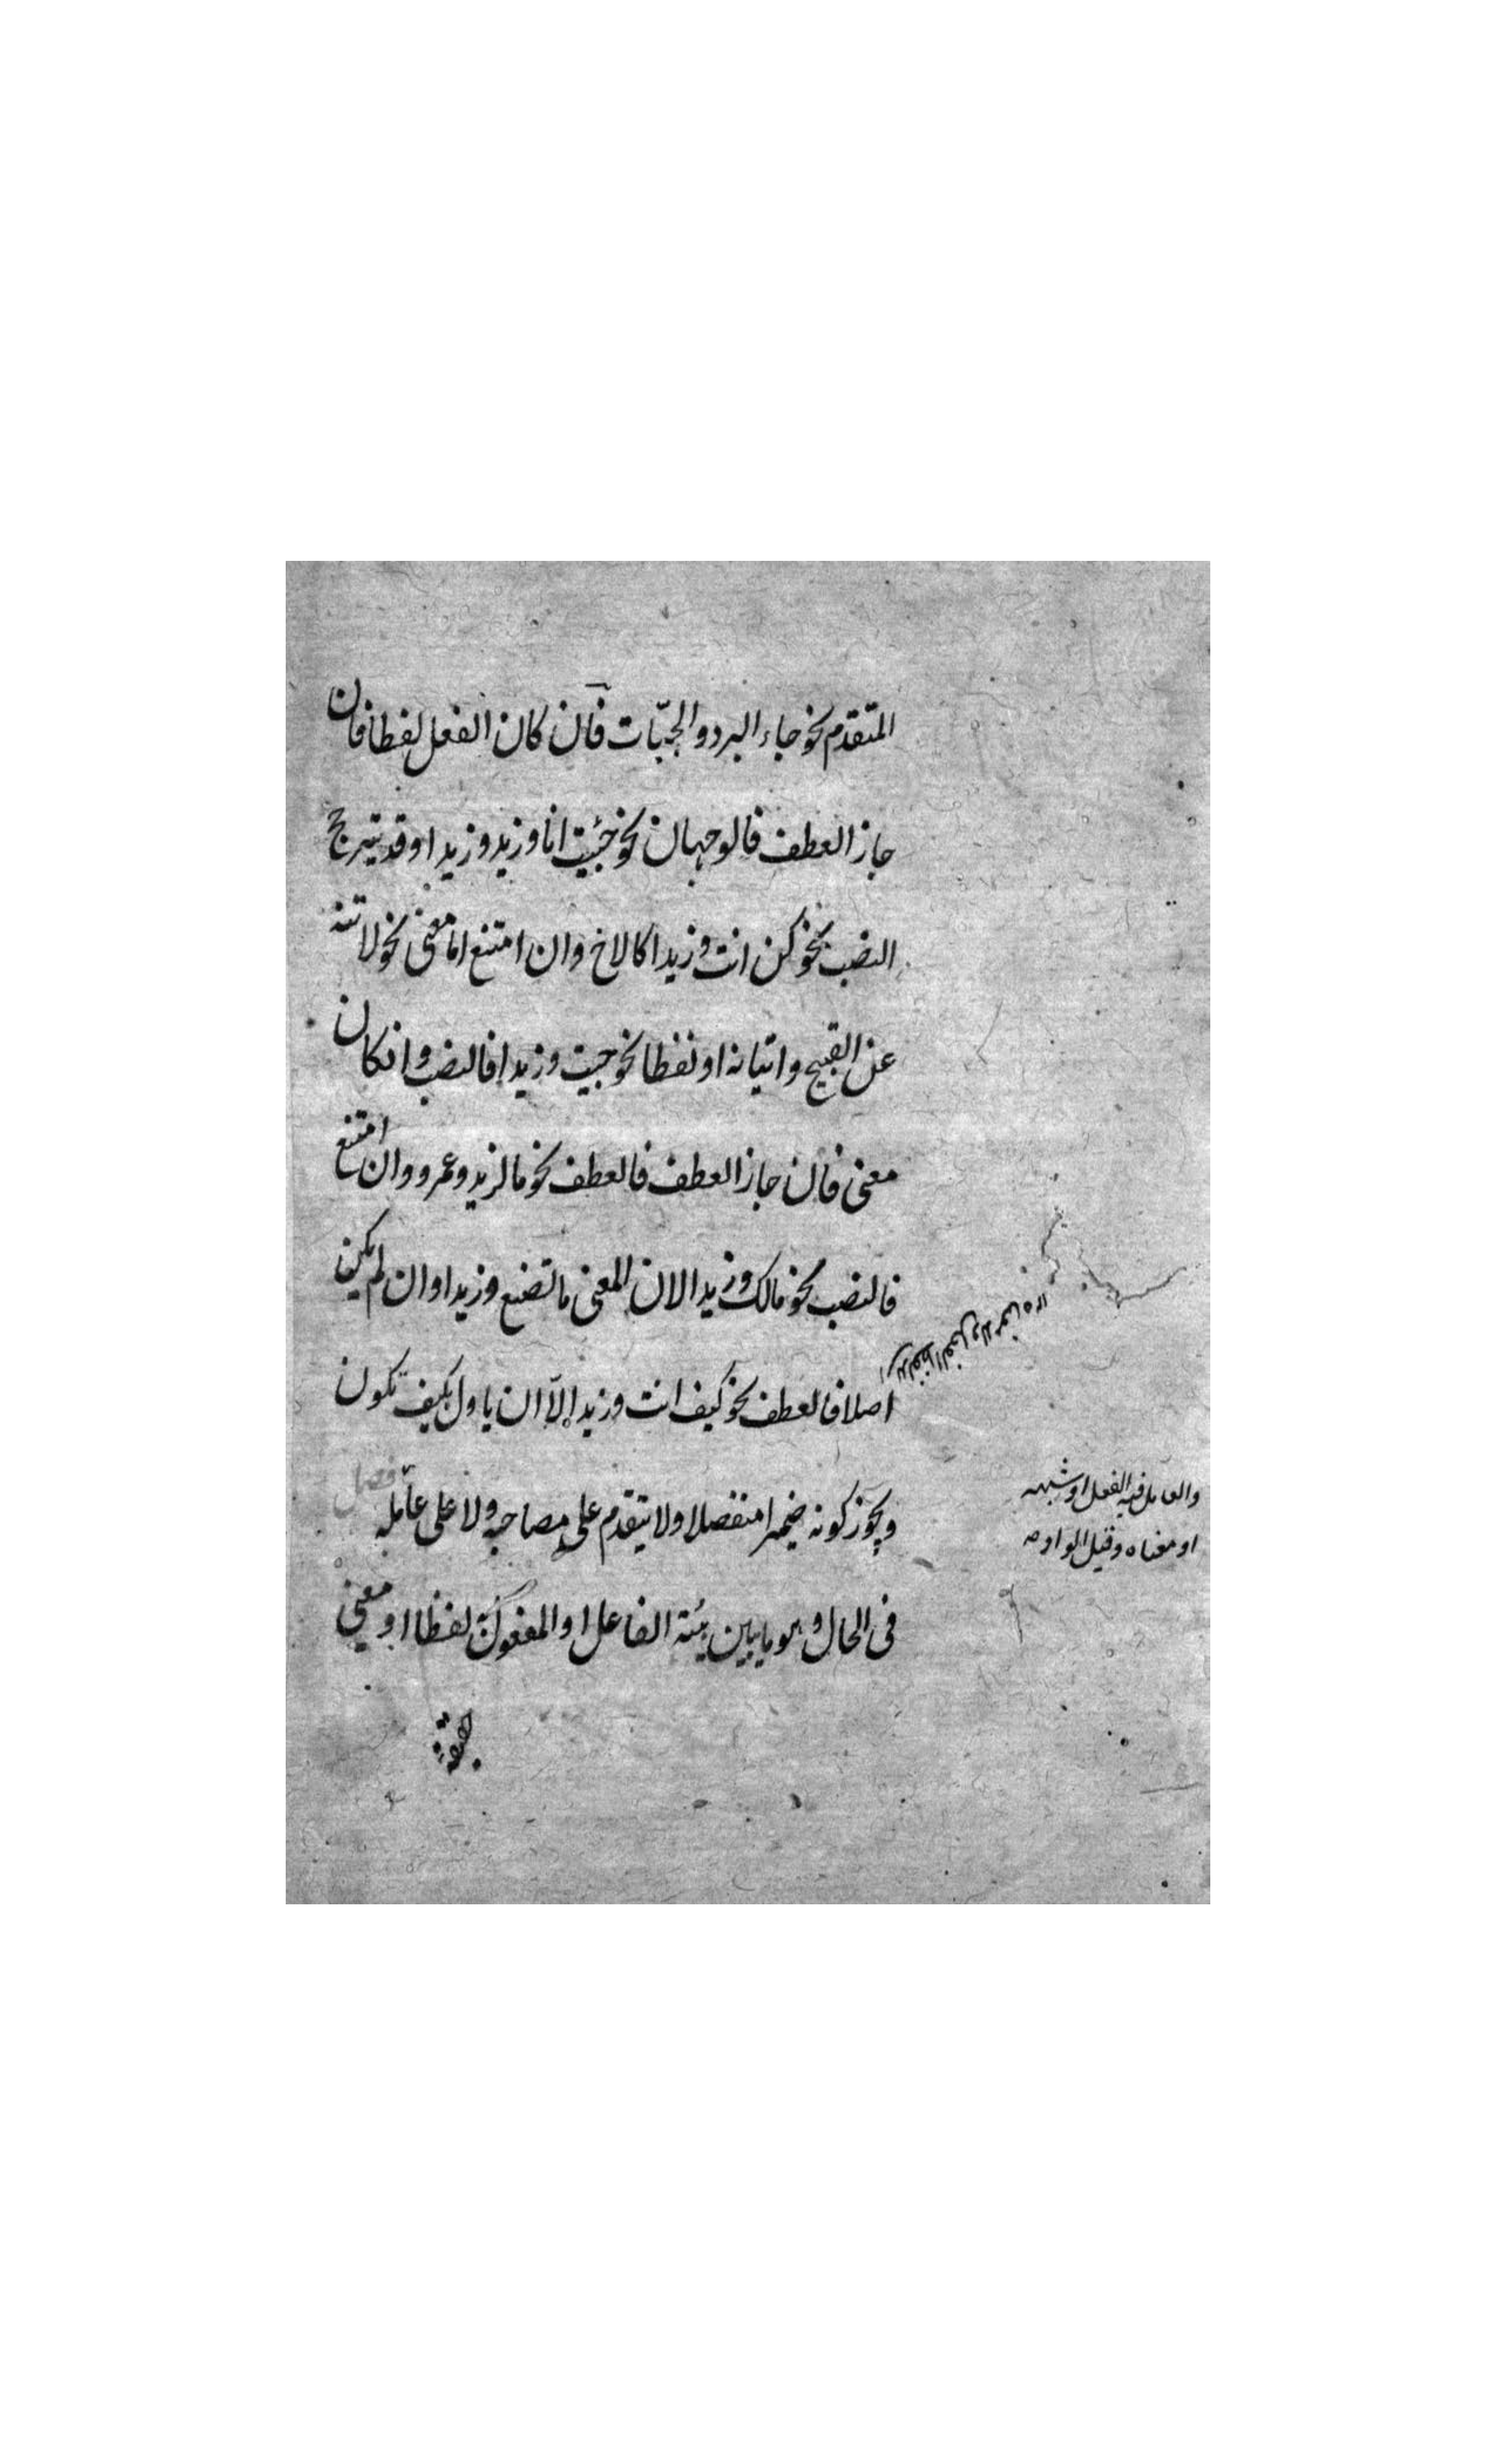 المتقدم نحو جاء البرد والجبّات فان كان الفعل لفظا فان
جاز العطف فالوجهان نحو جئت انا وزيد وزيدا وقد يترجح
النصب نحو كن انت وزيدا كالاخ وان امتنع اما معنى نحو لا تنه
عن القبيح واتيانه او لفظا نحو جيت وزيدا فالنصب وانكان
معنى فان جاز العطف فالعطف نحو ما لزيد وعمرو وان امتنع
فالنصب نحو مالك وزيدا لان المعنى ما تصنع وزيدا وان لم يكن
اصلا فالعطف نحو كيف انت وزيد إلّا ان ياول بكيف تكون
ويجوز كونه ضميرا منفصلا ولا يتقدم على مصاحبه ولا على عامله فصل
والعامل فيه الفعل او شبهه
او معناه وقيل الواو
فى الحال وهو ما يبين هيئة الفاعل او المفعول به لفظا او معنى